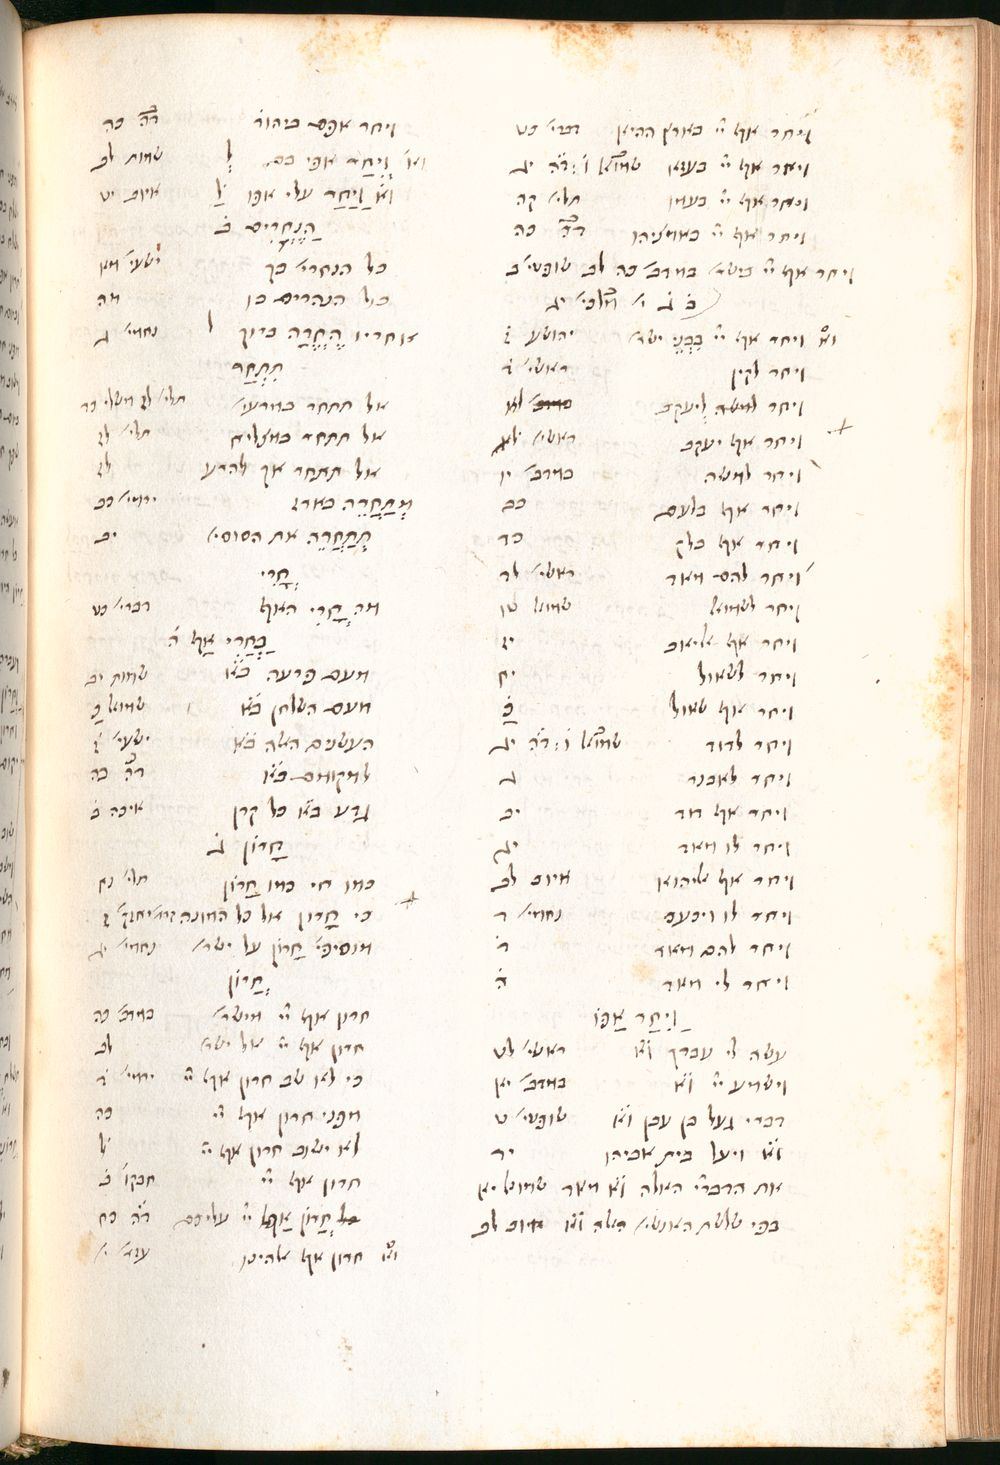 ויחר אף יי בארץ ההיא דברי׳ כט
ויחר אף יי בעוזא שמואל ו׳ ד״ה יג
ויחר אף יי בעמו תלי׳ קה
ויחר אף יי באמציהו ד״ה כה
ויחר אף יי בישר׳ במדב׳ כה לב שופטי׳ ב
ב ג י׳ מלכי׳ יג
וא׳ ויחר אף יי בִּבְנֵי ישר׳ יהושע ז
ויחר לקין ראשי׳ ד
ויחר ליעקב לא
ויחר אף יעקב ראשי׳ ל
ויחר למשה במדב׳ יו
ויחר אף בלעם כב
ויחר אף בלק כד
ויחר להם מאד ראשי׳ לד
ויחר לשמואל שמואל טו
ויחר אף אליאב יז
ויחר לשאול יח
ויחר אף שאול כ
ויחר לדוד שמואל ו׳ ד״ה יג
ויחר לאבנר ג
ויחר אף דוד יב
ויחר לו מאד יג
ויחר אף אליהוא איוב לב
ויחר לו ויכעס נחמי׳ ד
ויחר להם מאד ד
ויחר לי מאד ה
וַיִּחַר אַפּוֹ
עשה לי עבדך וא׳ ראשי׳ לט
וישמע יי וא׳ במדב׳ יא
דברי געל בן עבד וא׳ שופטי׳ ט
וא׳ ויעל בית אביהו יד
את הדברי׳ האלה וא׳ מאד שמואל יא
בפי שלשת האנשי׳ האלה וא׳ איוב לב
ויחר אפם ביהוד׳ ד״ה כה
וא׳ וְיִחַר אפי בם שמות לב
וא׳ וַיַּחַר עלי אפו איוב יט
הַנֶּחֱרִים ב
כל הנחרי׳ בך ישעי׳ מא
כול הנחרים בו מה
אוחריו הֶחֱרָה ברוך נחמי׳ ג
תִּתְחַר
אל תתחר במרעי׳ תלי׳ לז משלי כד
אל תתחר במצליח תלי׳ לז
אל תתחר אך להרע לז
מְתַחֲרֶה בארז ירמי׳ כב
תְּתַחֲרֶה את הסוסי׳ יב
חֳרִי
מה חֳרִי האף דברי׳ כט
בָּחֳרִי אַף ה
מעם פרעה בא׳ שמות יב
מעם השלחן בא׳ שמואל כ
העשנים האלה בא׳ ישעי׳ ז
למקומם בא׳ ד״ה כה
גָּדַע בא׳ כל קרן איכה ב
חָרוֹן ג
כמו חי כמו חָרוֹן תלי׳ נח
כי חָרוֹן אל כל המונה יחזק׳ ז
מוסיפי׳ חָרוֹן על ישר׳ נחמי׳ יג
חֲרוֹן
חרון אף יי מישר׳ במדב׳ כה
חרון אף יי אל ישר׳ לב
כי לא שב חרון אף יי ירמי׳ ד
מפני חרון אף יי כה
לא ישוב חרון אף יי ל
חרון אף יי חבקו׳ ב
חֲרוֹן אַף יי עליכם ד״ה כח
וא׳ חרון אף אלהינו עזרא י׳